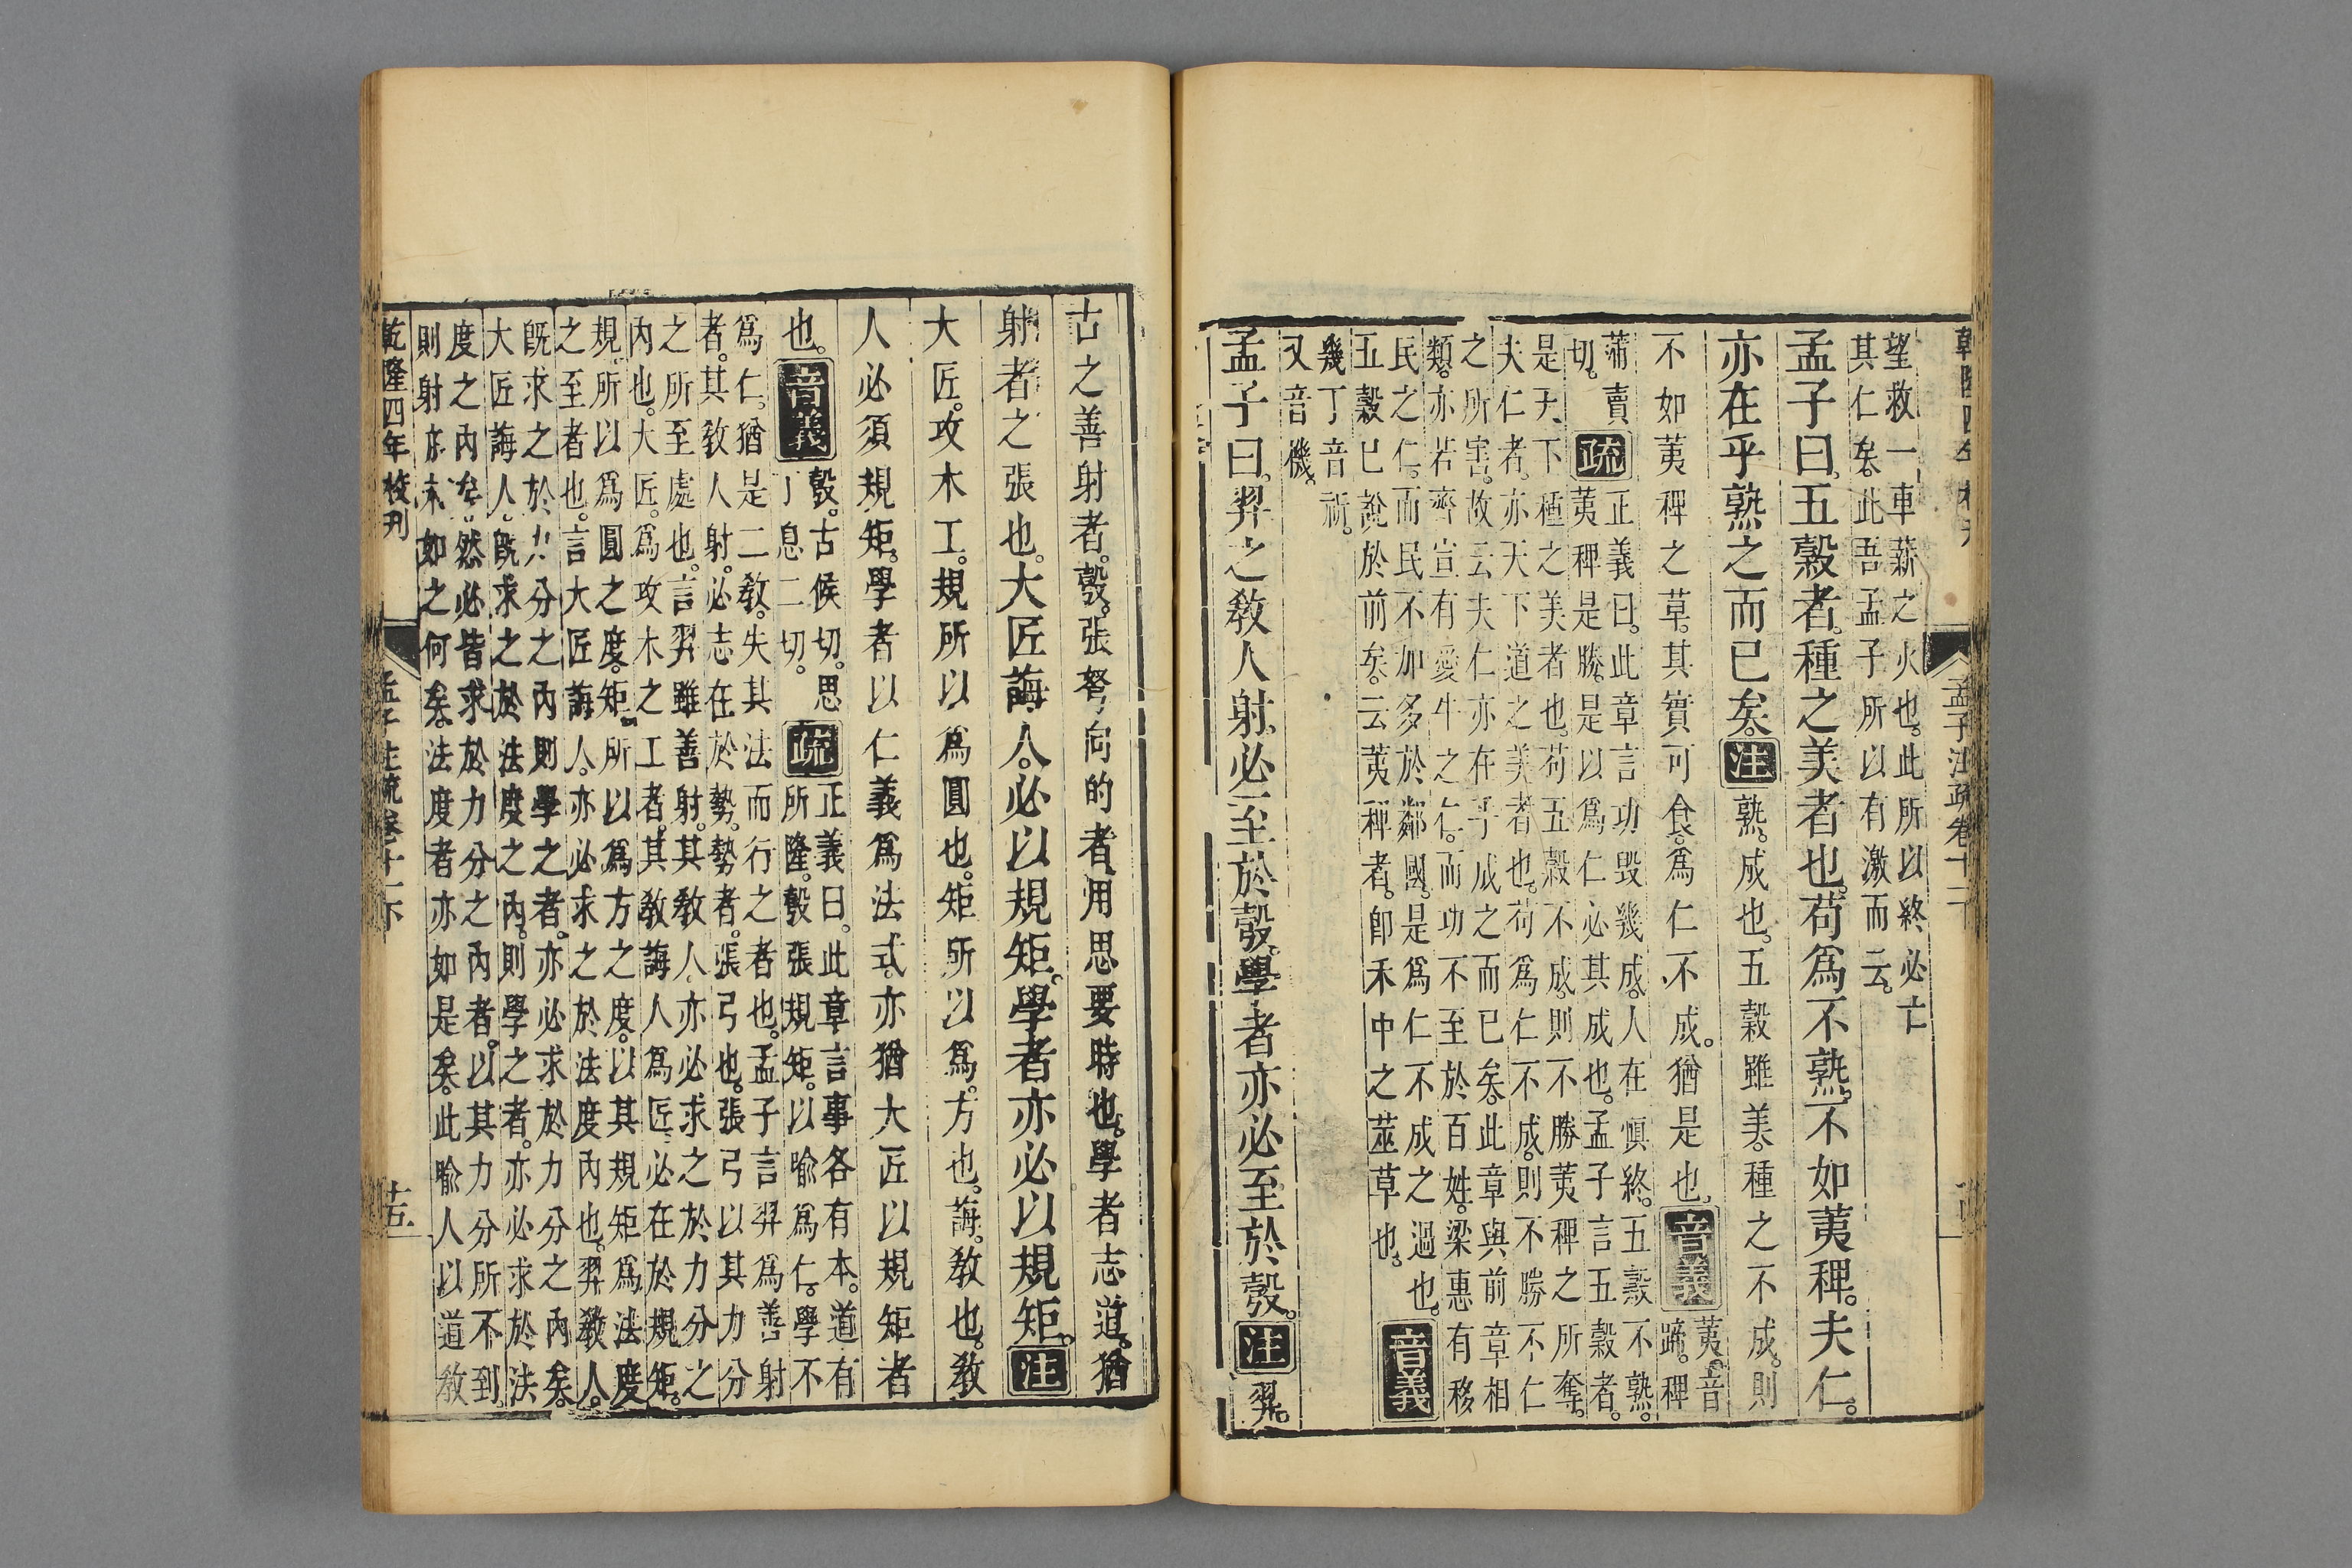 孟子注疏卷十一下
望救一車薪之火也。此所以終必亡
其仁矣。此吾孟子所以有激而云。
孟子曰。五穀者。種之美者也。苟爲不熟。不如荑稗。夫仁。
亦在乎熟之而已矣。注熟。成也。五穀雖美。種之不成。則
不如荑稗之草。其實可食。爲仁不成。猶是也。音義荑。音
蹄。稗
蒲賣
切。疏正義曰。此章言功毁幾成。人在愼終。五穀不熟。
荑稗是勝。是以爲仁必其成也。孟子言五穀者。
是天下種之美者也。苟五穀不成。則不勝荑稗之所奪。
夫仁者。亦天下道之美者也。苟爲仁不成。則不勝不仁
之所害。故云夫仁亦在乎成之而已矣。此章與前章相
類。亦若齊宣有愛牛之仁。而功不至於百姓。梁惠有移
民之仁。而民不加多於鄰國。是爲仁不成之過也。
五穀已說於前矣。云荑稗者。卽禾中之莁草也。音義
幾丁音祈。
又音機。
孟子曰。羿之敎人射。必至於彀。學者亦必至於彀。注羿。
古之善射者。彀。張弩向的者。用思要時也。學者志道。猶
射者之張也。大匠誨人。必以規矩。學者亦必以規矩。注
大匠。攻木工。規所以爲圓也。矩所以爲方也。誨。敎也。敎
人必須規矩。學者以仁義爲法式。亦猶大匠以規矩者
也。音義彀。古候切。思
丁息二切。疏正義曰。此章言事各有本。道有
所隆。彀張規矩。以喻爲仁。學不
爲仁。猶是二敎。失其法而行之者也。孟子言羿爲善射
者。其敎人射。必志在於勢。勢者。張弓也。張弓以其力分
之所至處也。言羿雖善射。其敎人。亦必求之於力分之
內也。大匠。爲攻木之工者。其敎誨人爲匠。必在於規矩。
規。所以爲圓之度。矩。所以爲方之度。以其規矩爲法度
之至者也。言大匠誨人。亦必求之於法度內也。羿敎人。
旣求之於力分之內。則學之者。亦必求於力分之內矣。
大匠誨人。旣求之於法度之內。則學之者。亦必求於法
度之內矣。然必皆求於力分之內者。以其力分所不到。
則射亦末如之何矣。法度者亦如是矣。此喻人以道敎
乾隆四年校刊
孟子注疏卷十一下
十五